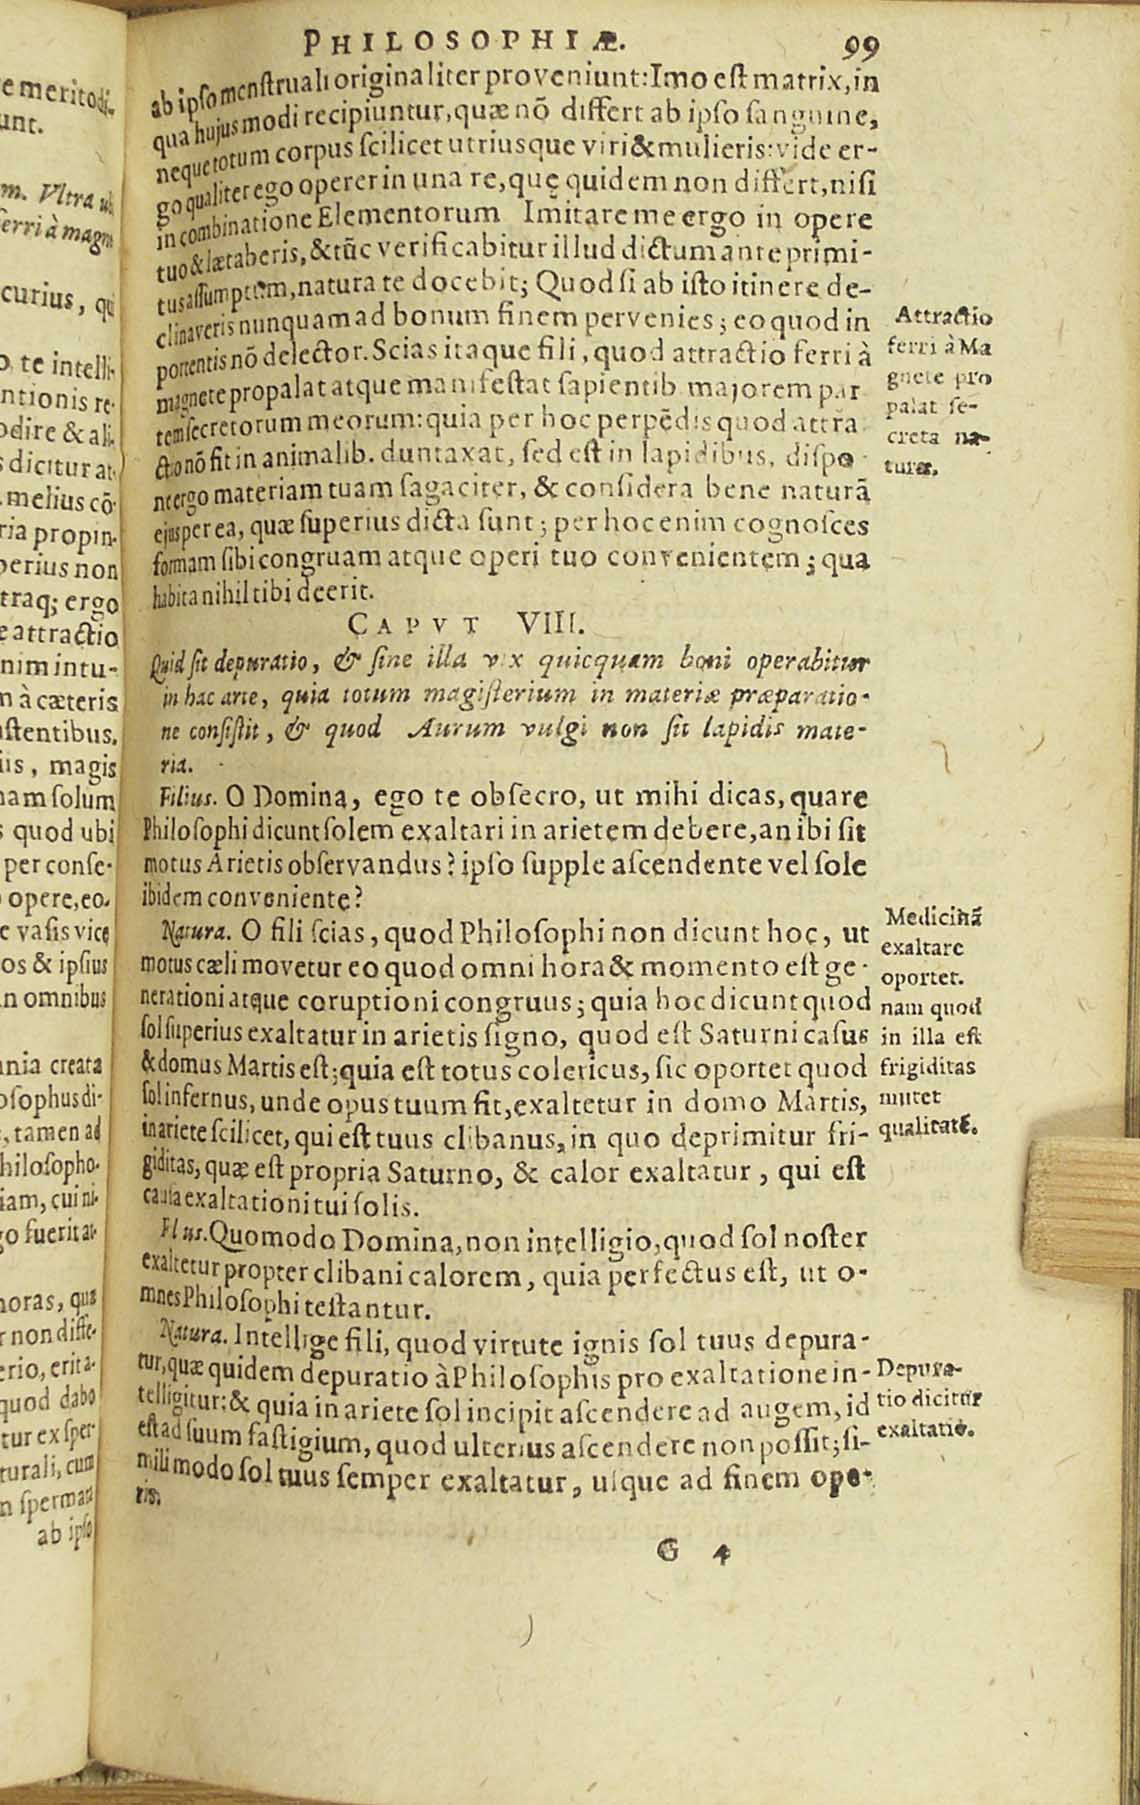 PHILOSOPHIÆ. 99
ab ipso menstruali originaliter proveniunt: Imo est matrix, in
qua hujusmodi recipiuntur, quæ nō differt ab ipso sanguine,
neque totum corpus scilicet utriusque viri & mulieris: vide er-
go qualiter ego operer in una re, quę quidem non differt, nisi
in combinatione Elementorum Imitare me ergo in opere
tuo & lætaberis, & tūc verificabitur illud dictum ante primi-
tus assumptum, natura te docebit; Quod si ab isto itinere de-
clinaveris nunquam ad bonum finem pervenies; eo quod in
portentis nō delector. Scias itaque fili, quod attractio ferri à
magnete propalat atque manifestat sapientib majorem par
tem secretorum meorum: quia per hoc perpēdis quod attra
ctio nō fit in animalib. duntaxat, sed est in lapidibus, dispo
ne ergo materiam tuam sagaciter, & considera bene naturā
ejus per ea, quæ superius dicta sunt; per hoc enim cognosces
formam sibi congruam atque operi tuo convenientem; qua
habita nihil tibi deerit.
Attractio
ferri à Ma
gnete pro
palat se-
creta na-
turæ.
CAPVT VIII.
Quid sit depuratio, & sine illa vix quicquam boni operabitur
in hac arte, quia totum magisterium in materiæ præparatio-
ne consistit, & quod Aurum vulgi non sit lapidis mate-
ria.
Filius. O Domina, ego te obsecro, ut mihi dicas, quare
Philosophi dicunt solem exaltari in arietem debere, an ibi sit
motus Arietis observandus? ipso supple ascendente vel sole
ibidem conveniente?
Natura. O fili scias, quod Philosophi non dicunt hoc, ut
motus cæli movetur eo quod omni hora & momento est ge-
nerationi atque coruptioni congruus; quia hoc dicunt quod
sol superius exaltatur in arietis signo, quod est Saturni casus
& domus Martis est; quia est totus colericus, sic oportet quod
sol infernus, unde opus tuum fit, exaltetur in domo Martis,
in ariete scilicet, qui est tuus clibanus, in quo deprimitur fri-
giditas, quæ est propria Saturno, & calor exaltatur, qui est
causa exaltationi tui solis.
Medicinā
exaltare
oportet.
nam quod
in illa est
frigiditas
mutet
qualitatē.
Filius. Quomodo Domina, non intelligio, quod sol noster
exaltetur propter clibani calorem, quia perfectus est, ut o-
mnes Philosophi testantur.
Natura. Intellige fili, quod virtute ignis sol tuus depura-
tur, quæ quidem depuratio à Philosophis pro exaltatione in-
telligitur: & quia in ariete sol incipit ascendere ad augem, id
est ad suum fastigium, quod ulterius ascendere non possit; si-
mili modo sol tuus semper exaltatur, usque ad finem ope-
ris.
Depura-
tio dicitur
exaltatio.
G 4